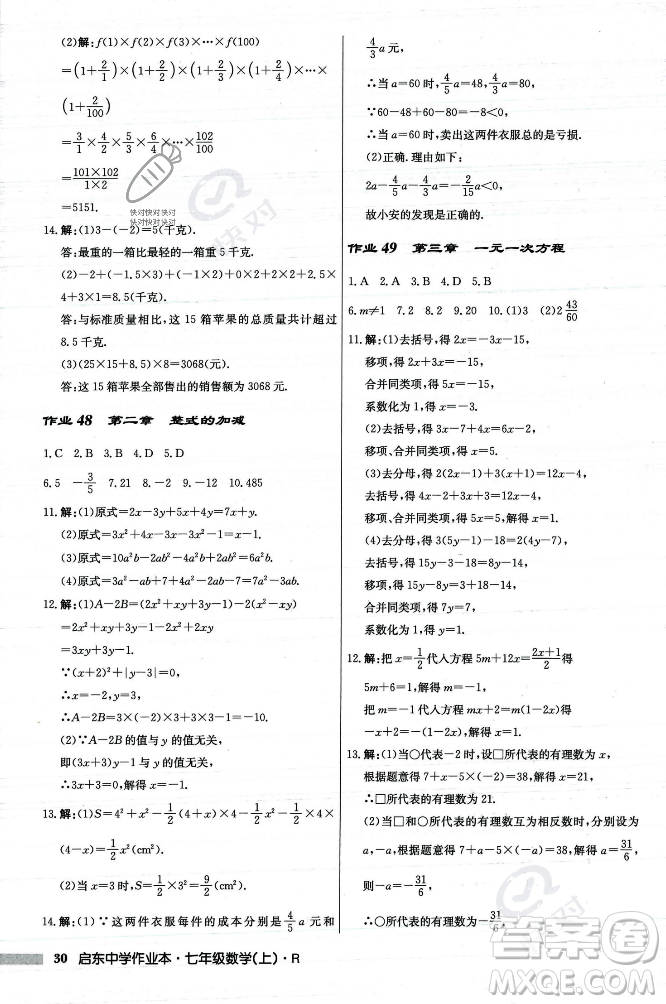 (2)解:f(1)×f(2)×f(3)×…×f(100)
=(1+2/1)×(1+2/2)×(1+2/3)×(1+2/4)×…×
(1+2/100)
=3/1×4/2×5/3×6/4×…×102/100
=101×102/1×2
=5151.
14.解:(1)3-(-2)=5(千克).
答:最重的一箱比最轻的一箱重5千克.
(2)-2×3+(-1.5)×2+(-1)+0×2+2.5×
4+3×1=8.5(千克).
答:与标准质量相比,这15箱苹果的总质量共计超过
8.5千克.
(3)(25×15+8.5)×8=3068(元).
答:这15箱苹果全部售出的销售额为3068元.
作业48 第二章 整式的加减
1.C 2.B 3.A 4.D 5.D
6.5 -3/5 7.21 8.-2 9.-12 10.485
11.解:(1)原式=2x+4y+5x-3y=7x+y.
(2)原式=3x²+4x-3x²-2x-1-x=x-1.
(3)原式=10a²b-2ab²-9a²b+3ab²=a²b+ab².
(4)原式=3a²-ab+7+8a²-4ab-14=11a²-5ab-7.
12.解:(1)A-2B=(2x²+xy+3y-1)-2(x²-xy)
=2x²+xy+3y-1-2x²+2xy
=3xy+3y-1.
∵(x+2)²+|y-3|=0,∴x=-2,y=3.
∴A-2B=3×(-2)×3+3×3-1=-10.
(2)∵A-2B的值与y的值无关,
即(3x+3)y-1的值与y的值无关,
∴3x+3=0,解得x=-1.
13.解:(1)S=4²+x²-1/2(4+x)×4-1/2x²-1/2×
(4-x)×4=1/2x²(cm²).
(2)当x=3时,S=1/2×3²=9/2(cm²).
14.解:(1)∵这两件衣服每件的成本分别是4/5a元和
4/3a元,
∴当a=60时,4/5a=48,4/3a=80.
∵60-48+60-80=-8<0,
∴当a=60时,卖出这两件衣服总的是亏损.
(2)正确.理由如下:
2a-4/5a-4/3a=-2/15a<0,
故小安的发现是正确的.
作业49 第三章 一元一次方程
1.A 2.A 3.B 4.D 5.B
6.m≠1 7.2 8.2 9.20 10.(1)3 (2)2 43/60
11.解:(1)去括号,得2x=-3x-15,
移项,得2x+3x=-15,
合并同类项,得5x=-15,
系数化为1,得x=-3.
(2)去括号,得3x-7x+7=3-2x-6,
移项、合并同类项,得-2x=-10,
系数化为1,得x=5.
(3)去分母,得2(5x+1)-(2x-1)=6,
去括号,得10x+2-2x+1=6,
移项、合并同类项,得8x=3,
系数化为1,得x=3/8.
(4)去分母,得3(5y-1)-2(4y-4)=12,
去括号,得15y-3-8y+8=12,
移项,得15y-8y=12+3-8,
合并同类项,得7y=7,
系数化为1,得y=1.
12.解:把x=1/2代入方程5m+12x=(2x+1)/2得
5m+6=1,解得m=-1.
把m=-1代入方程mx+2=m(1-2x)得
-x+2=-(1-2x),解得x=1.
13.解:(1)当○代表-2时,设□所代表的有理数为x,
根据题意得7+x-5×(-2)=38,解得x=21.
∴□所代表的有理数为21.
(2)当□和○所代表的有理数互为相反数时,分别设为
a,-a,根据题意得7+a-5×(-a)=38,解得a=31/6,
则-a=-31/6,
∴○所代表的有理数为-31/6.
30 启东中学作业本·七年级数学(上)·R
快对快对快对
快对快对快对
快对
快对
答案
MXQE.COM